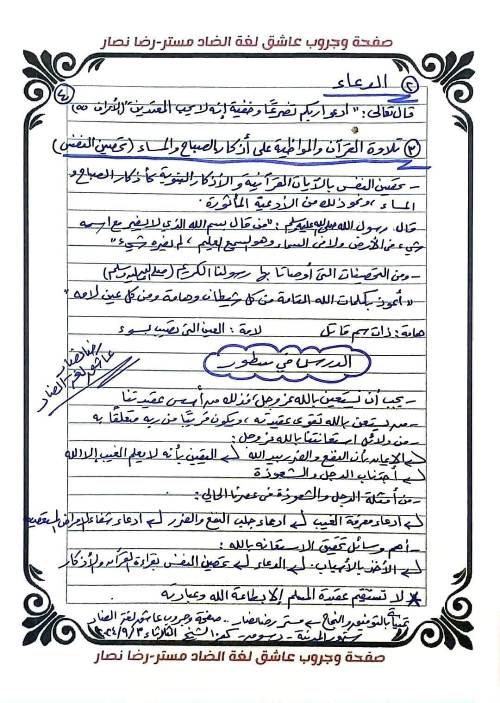 صفحة وجروب عاشق لغة الضاد مستر-رضا نصار
٤
٢ الدعاء
قال تعالى: "ادعوا ربكم تضرعًا وخفية إنه لا يحب المعتدين" (الأعراف ٥٥)
٣ تلاوة القرآن والمواظبة على أذكار الصباح والمساء (تحصين النفس)
- تحصين النفس بالآيات القرآنية والأذكار النبوية كأذكار الصباح و
المساء، ونحو ذلك من الأدعية المأثورة.
قال رسول الله صلى الله عليه وسلم: "من قال بسم الله الذي لا يضر مع اسمه
شيء في الأرض ولا في السماء وهو السميع العليم، لم يضره شيء"
- ومن التحصينات التي أوصانا بها رسولنا الكريم (صلى الله عليه وسلم)
"أعوذ بكلمات الله التامة من كل شيطان وهامة ومن كل عين لامة"
هامة: ذات سم قاتل لامة: العين التي تصيب بسوء
الدرس في سطور
رضا نصار
عاشق لغة الضاد
- يجب أن نستعين بالله عز وجل، فذلك من أسس عقيدتنا
- من يستعن بالله تقوى عقيدته، ويكون قريبًا من ربه متعلقًا به
- من دلائل استعانتنا بالله عز وجل:
الإيمان بأن النفع والضر بيد الله اليقين بأنه لا يعلم الغيب إلا الله
اجتناب الدجل والشعوذة
- من أمثلة الدجل والشعوذة في عصرنا الحالي:
ادعاء معرفة الغيب ادعاء جلب النفع والضرر ادعاء شفاء الأمراض المستعصية
- أهم وسائل تحقيق الاستعانة بالله:
الأخذ بالأسباب. الدعاء تحصين النفس بقراءة القرآن والأذكار
* لا تستقيم عقيدة المسلم إلا بطاعة الله وعبادته
تمنياتي بالتوفيق والنجاح مستر رضا نصار .. صفحة وجروب عاشق لغة الضاد
دسوق - كفر الشيخ الثلاثاء ٢٠٢٤/٩/٣
صفحة وجروب عاشق لغة الضاد مستر-رضا نصار